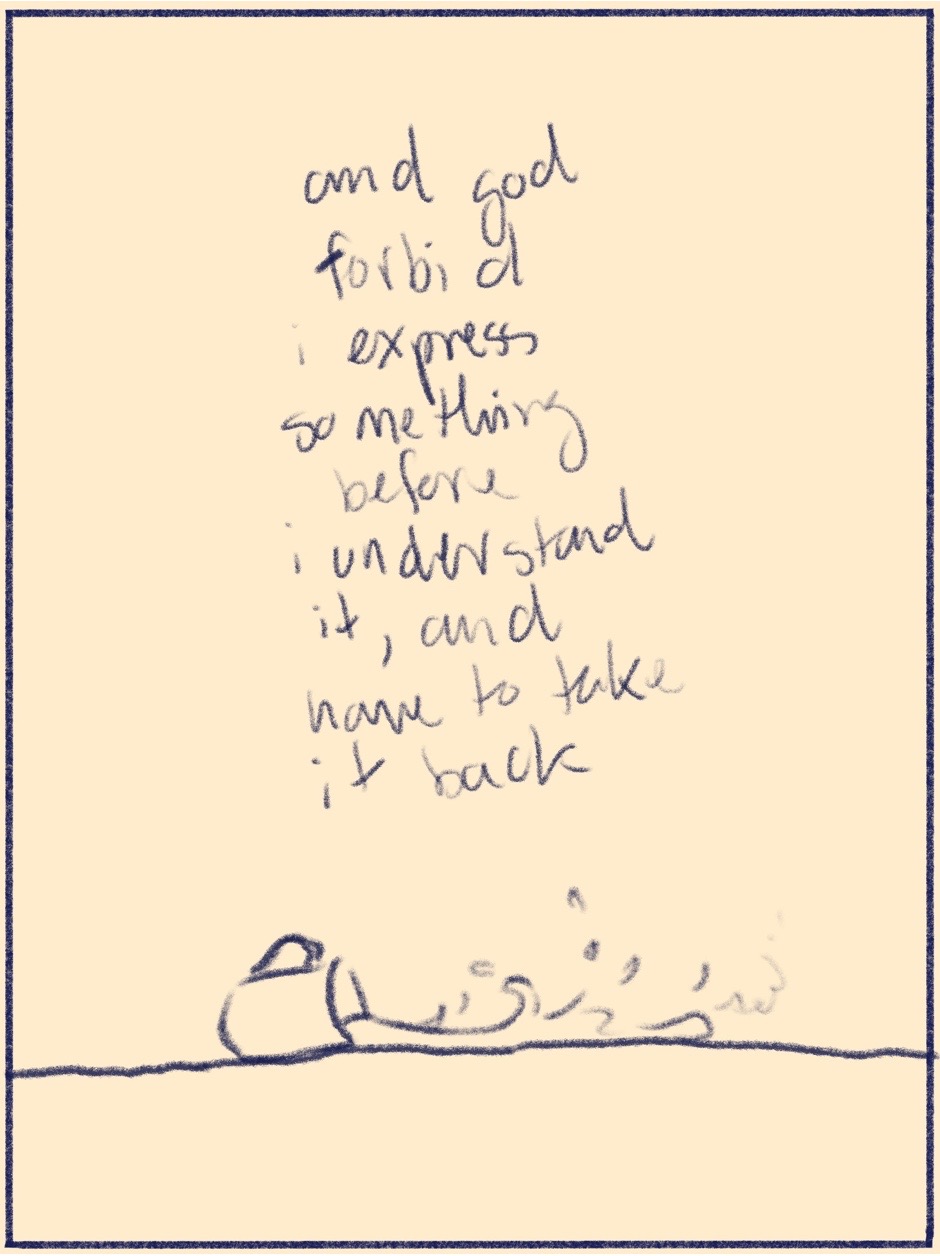 and god
forbid
i express
something
before
i understand
it, and
have to take
it back